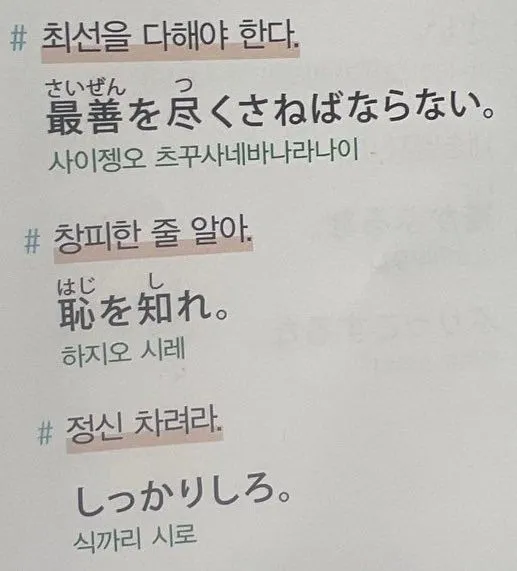 # 최선을 다해야 한다.
さいぜん つ
最善を尽くさねばならない。
사이젱오 츠꾸사네바나라나이
# 창피한 줄 알아.
はじ し
恥を知れ。
하지오 시레
# 정신 차려라.
しっかりしろ。
식까리 시로